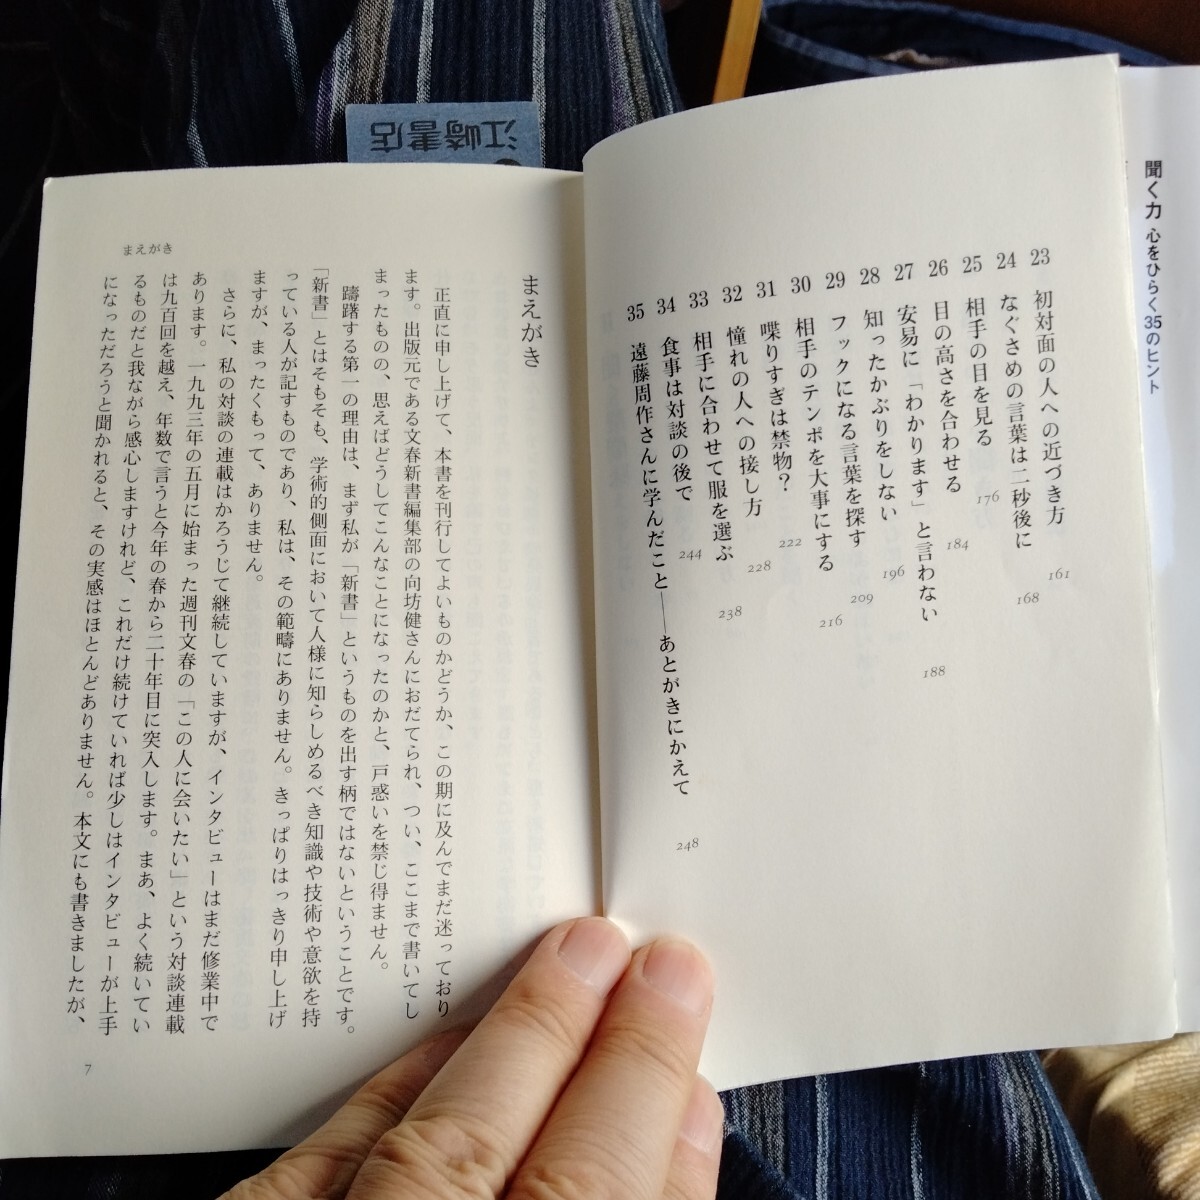 江崎書店
聞く力 心をひらく35のヒント
23 初対面の人への近づき方 161
24 なぐさめの言葉は二秒後に 168
25 相手の目を見る 176
26 目の高さを合わせる 184
27 安易に「わかります」と言わない 188
28 知ったかぶりをしない 196
29 フックになる言葉を探す 209
30 相手のテンポを大事にする 216
31 喋りすぎは禁物? 222
32 憧れの人への接し方 228
33 相手に合わせて服を選ぶ 238
34 食事は対談の後で 244
35 遠藤周作さんに学んだこと——あとがきにかえて 248
まえがき
正直に申し上げて、本書を刊行してよいものかどうか、この期に及んでまだ迷っており
ます。出版元である文春新書編集部の向坊健さんにおだてられ、つい、ここまで書いてし
まったものの、思えばどうしてこんなことになったのかと、戸惑いを禁じ得ません。
躊躇する第一の理由は、まず私が「新書」というものを出す柄ではないということです。
「新書」とはそもそも、学術的側面において人様に知らしめるべき知識や技術や意欲を持
っている人が記すものであり、私は、その範疇にありません。きっぱりはっきり申し上げ
ますが、まったくもって、ありません。
さらに、私の対談の連載はかろうじて継続していますが、インタビューはまだ修業中で
あります。一九九三年の五月に始まった週刊文春の「この人に会いたい」という対談連載
は九百回を越え、年数で言うと今年の春から二十年目に突入します。まあ、よく続いてい
るものだと我ながら感心しますけれど、これだけ続けていれば少しはインタビューが上手
になっただろうと聞かれると、その実感はほとんどありません。本文にも書きましたが、
まえがき
7